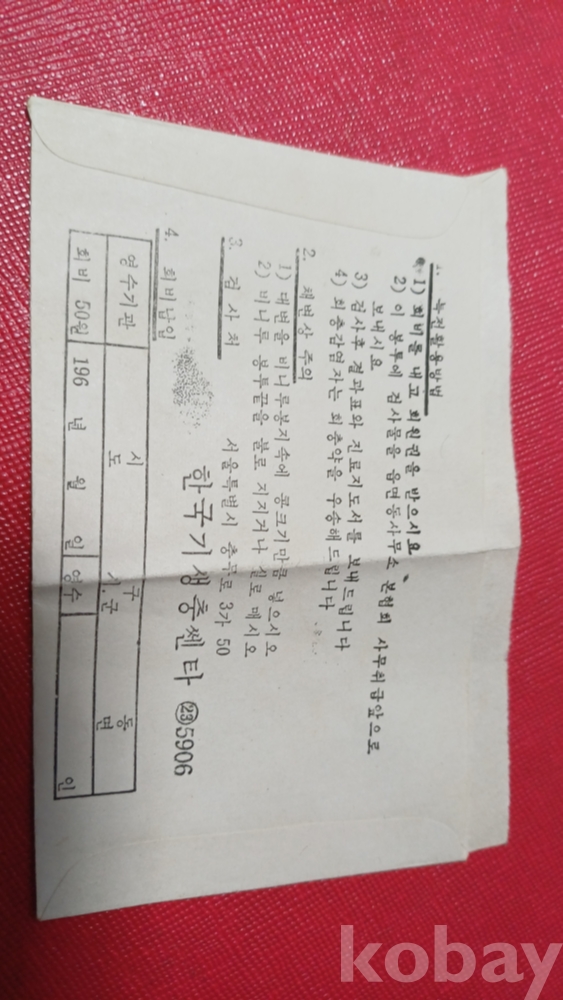 1. 녹전활용방법
1) 회비를 내고 회원권을 받으시요
2) 이 봉투에 검사물을 읍면동사무소 본협회 사무취급앞으로
보내시요
3) 검사후 결과표와 진료지도서를 보내드립니다
4) 회충감염자는 회충약을 우송해드립니다
2. 채변상 주의
1) 대변을 비니루봉지속에 콩크기만큼 넣으시오
2) 비니루 봉투끝을 불로 지지거나 실로 매시오
3. 검사처
서울특별시 충무로 3가 50
한국기생충쎈타 ㉓5906
4. 회비납입
영수기관 시도 구시.군 동면
회비 50원 196 년 월 일 영수 인
kobay